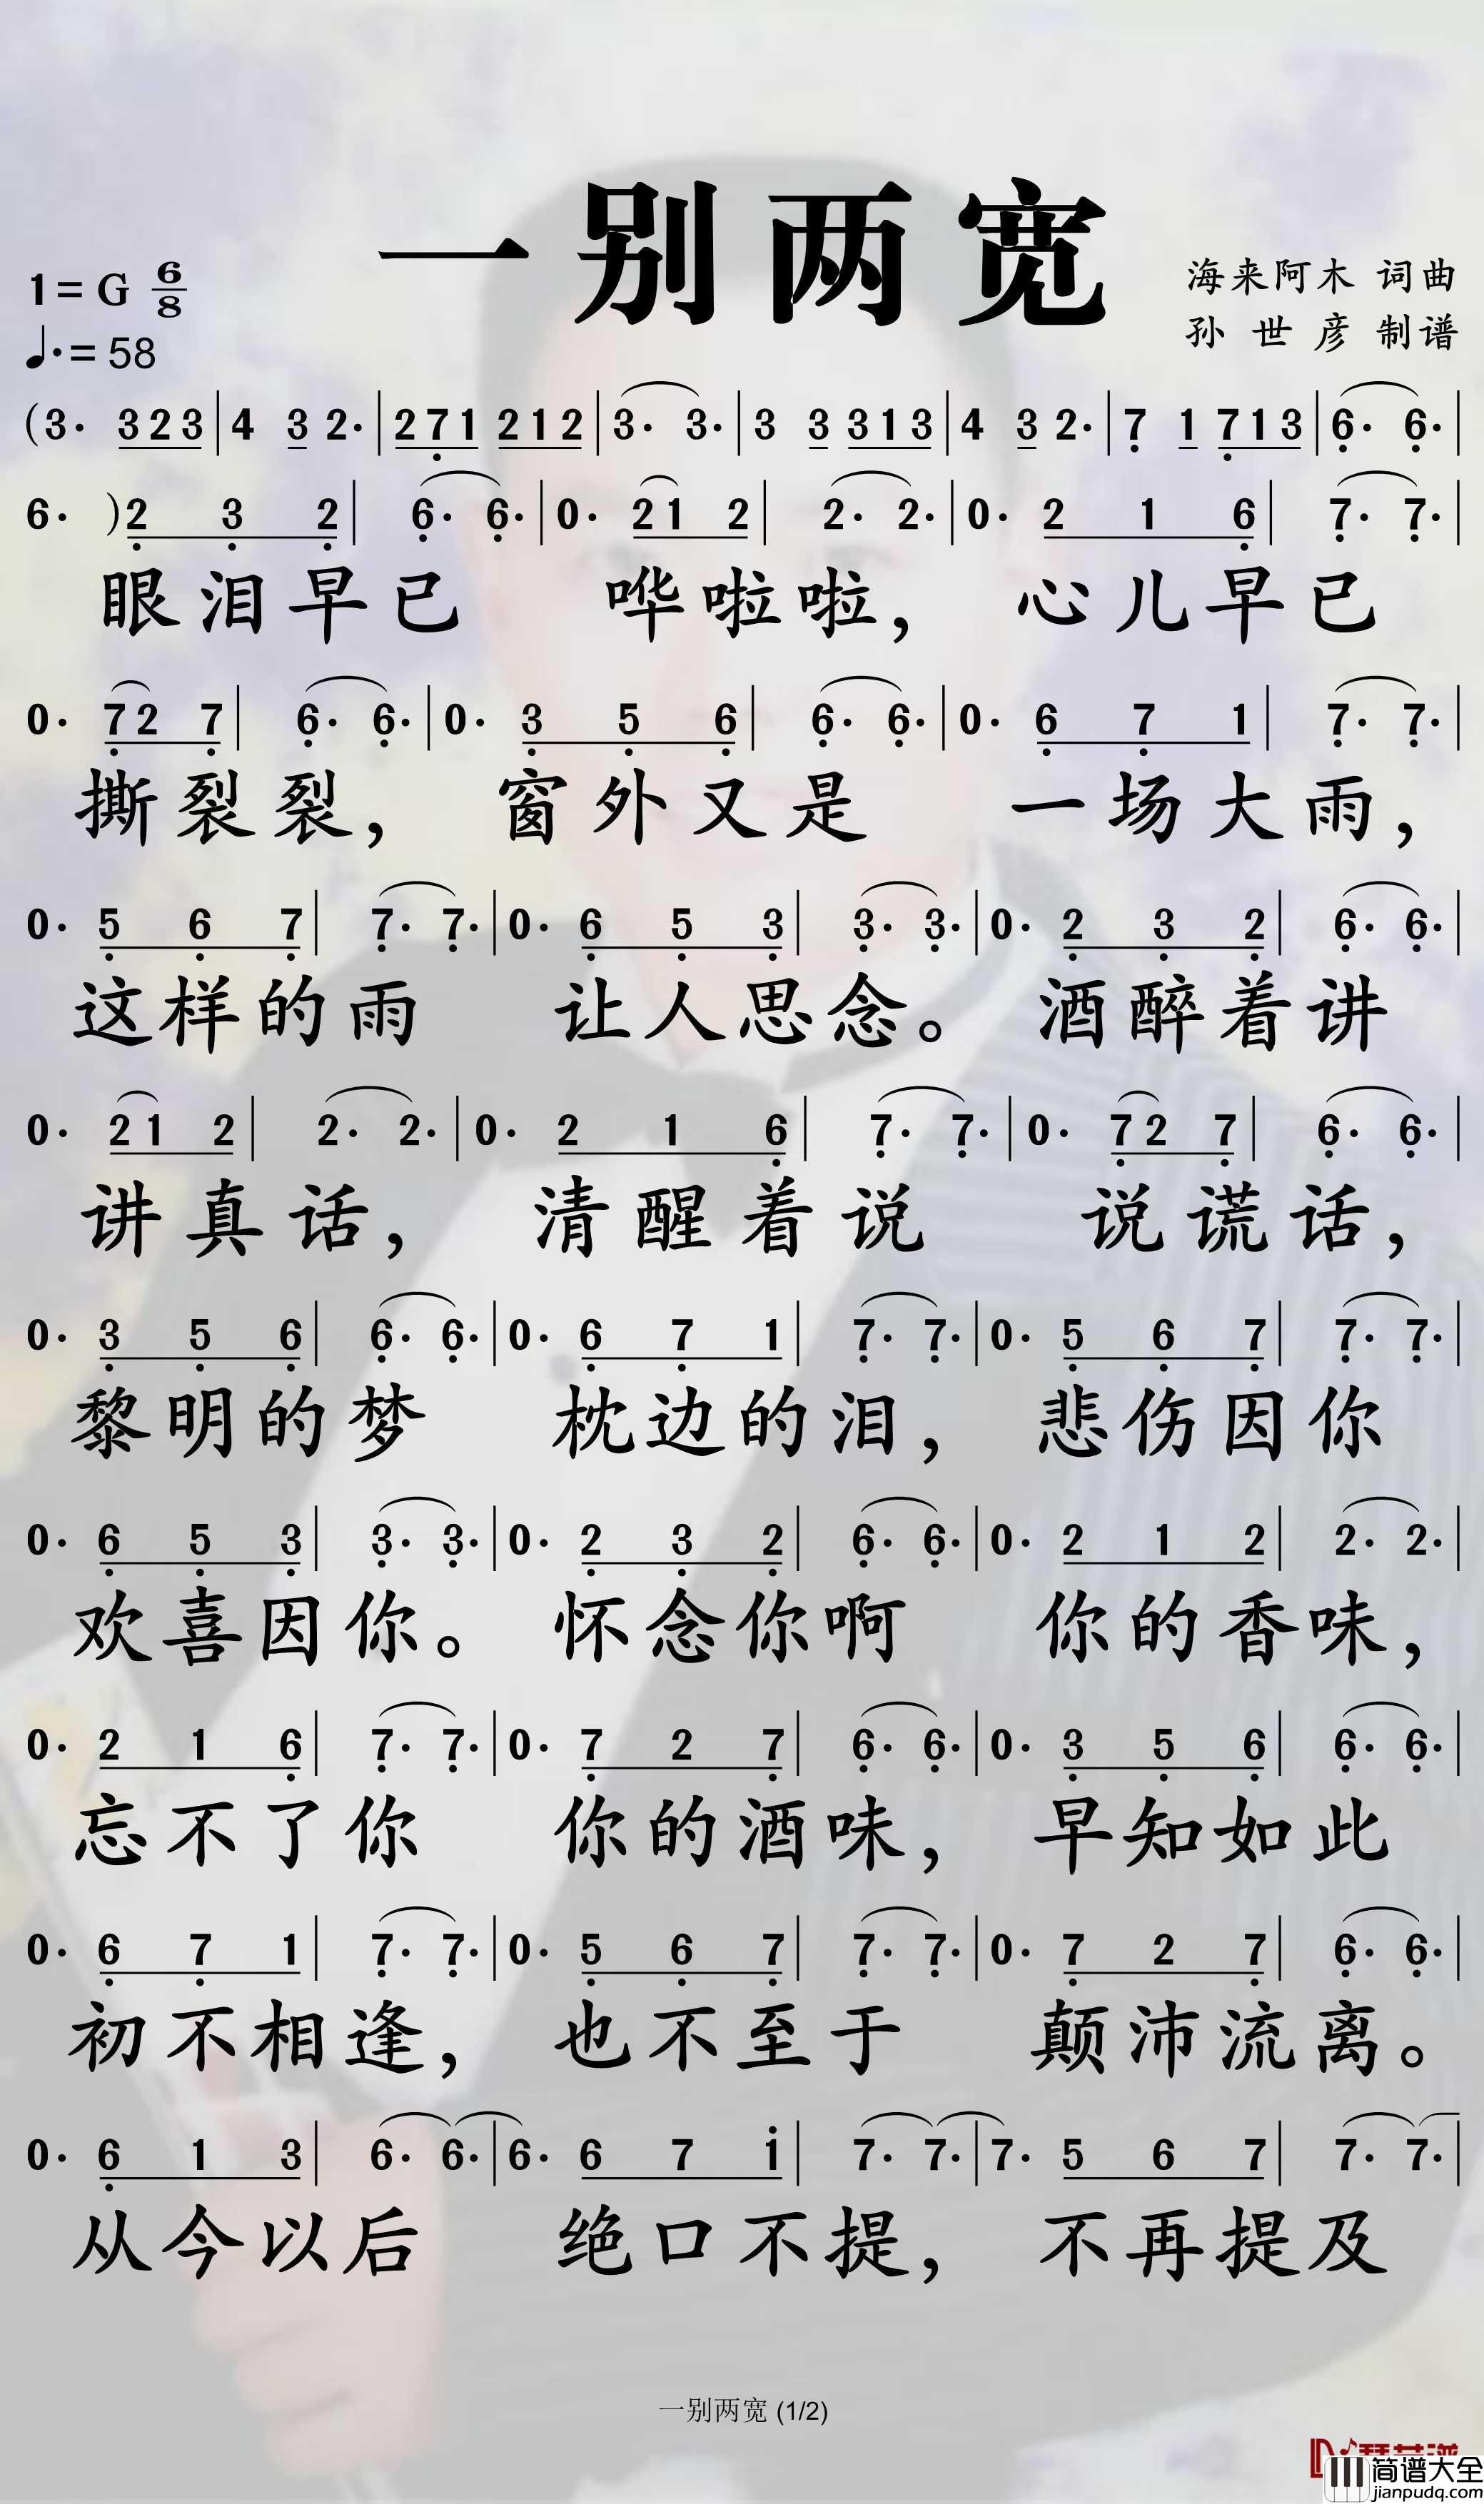 一别两宽
1=G 6/8
♩.=58
海来阿木 词曲
孙世彦 制谱
(3· 323|4 3 2·|271 212|3· 3·|3 3 313|4 3 2·|7 1 713|6· 6·|
6· )2 3 2|6· 6·|0· 21 2|2· 2·|0· 2 1 6|7· 7·|
眼泪早已 哗啦啦, 心儿早已
0· 72 7|6· 6·|0· 3 5 6|6· 6·|0· 6 7 1|7· 7·|
撕裂裂, 窗外又是 一场大雨,
0· 5 6 7|7· 7·|0· 6 5 3|3· 3·|0· 2 3 2|6· 6·|
这样的雨 让人思念。 酒醉着讲
0· 21 2|2· 2·|0· 2 1 6|7· 7·|0· 72 7|6· 6·|
讲真话, 清醒着说 说谎话,
0· 3 5 6|6· 6·|0· 6 7 1|7· 7·|0· 5 6 7|7· 7·|
黎明的梦 枕边的泪, 悲伤因你
0· 6 5 3|3· 3·|0· 2 3 2|6· 6·|0· 2 1 2|2· 2·|
欢喜因你。 怀念你啊 你的香味,
0· 2 1 6|7· 7·|0· 7 2 7|6· 6·|0· 3 5 6|6· 6·|
忘不了你 你的酒味, 早知如此
0· 6 7 1|7· 7·|0· 5 6 7|7· 7·|0· 7 2 7|6· 6·|
初不相逢, 也不至于 颠沛流离。
0· 6 1 3|6· 6·|6· 6 7 i|7· 7·|7· 5 6 7|7· 7·|
从今以后 绝口不提, 不再提及
一别两宽 (1/2)
简谱大全
jianpudq.com